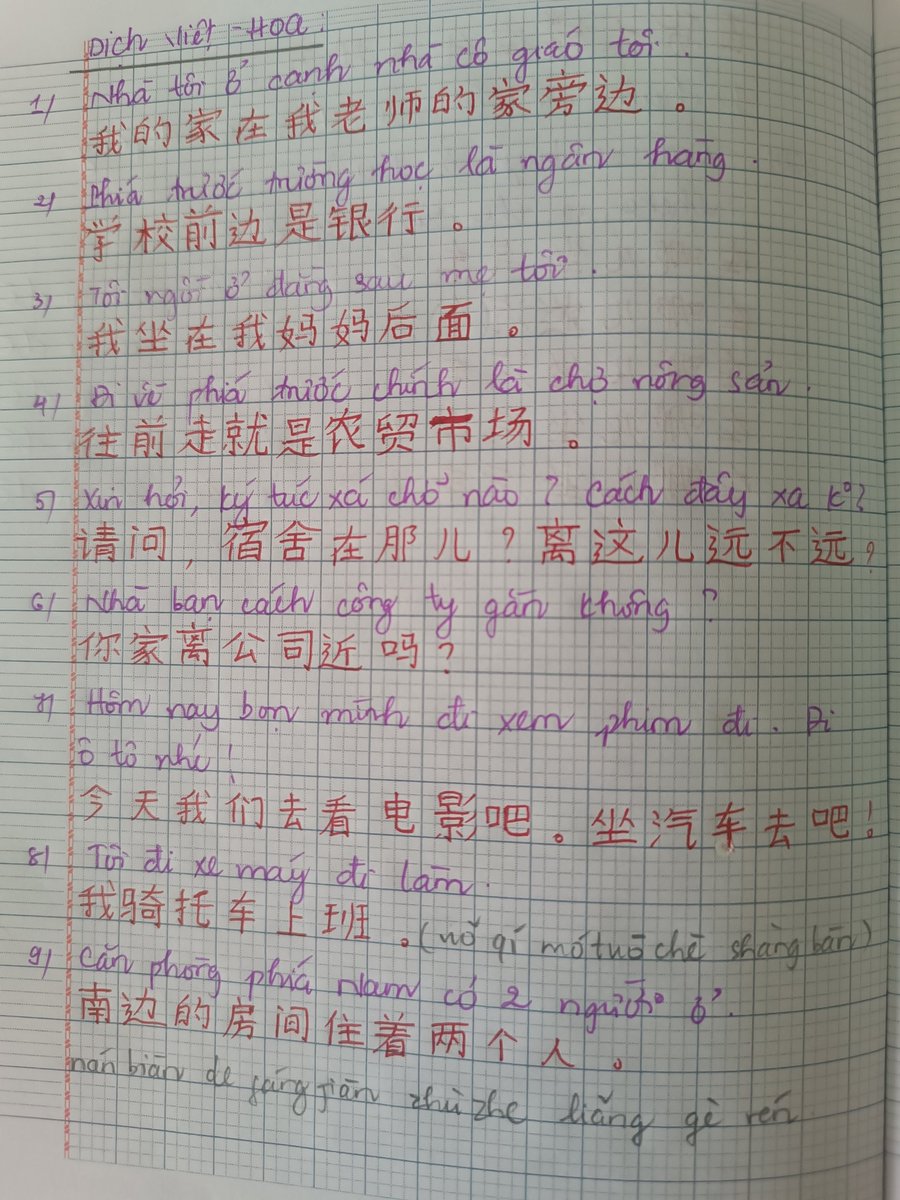 Dịch Việt - Hoa:
1) Nhà tôi ở cạnh nhà cô giáo tôi.
我的家在我老师的家旁边。
2) Phía trước trường học là ngân hàng.
学校前边是银行。
3) Tôi ngồi ở đằng sau mẹ tôi.
我坐在我妈妈后面。
4) Đi về phía trước chính là chợ nông sản.
往前走就是农贸市场。
5) Xin hỏi, ký túc xá chỗ nào? Cách đây xa k°?
请问,宿舍在那儿?离这儿远不远?
6) Nhà bạn cách công ty gần không?
你家离公司近吗?
7) Hôm nay bọn mình đi xem phim đi. Đi
ô tô nhé!
今天我们去看电影吧。坐汽车去吧!
8) Tôi đi xe máy đi làm.
我骑托车上班。(wǒ qí mótuō chē shàng bān)
9) Căn phòng phía Nam có 2 người ở.
南边的房间住着两个人。
nán biān de fáng jiān zhù zhe liǎng gè rén